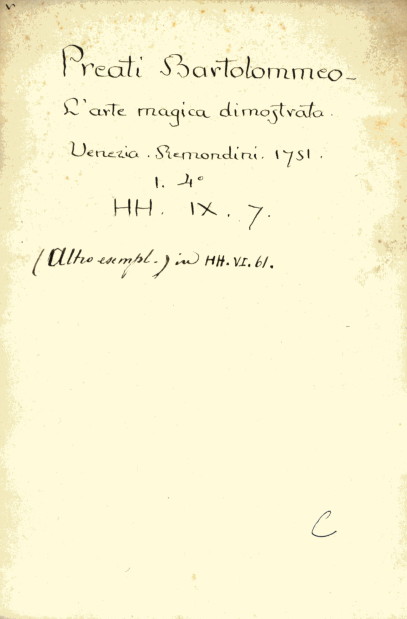 Preati Bartolommeo -
L'arte magica dimostrata.
Venezia. Remondini. 1751.
1. 4°
HH. IX. 7.
(Altro esempl.) in HH. VI. 61.
C